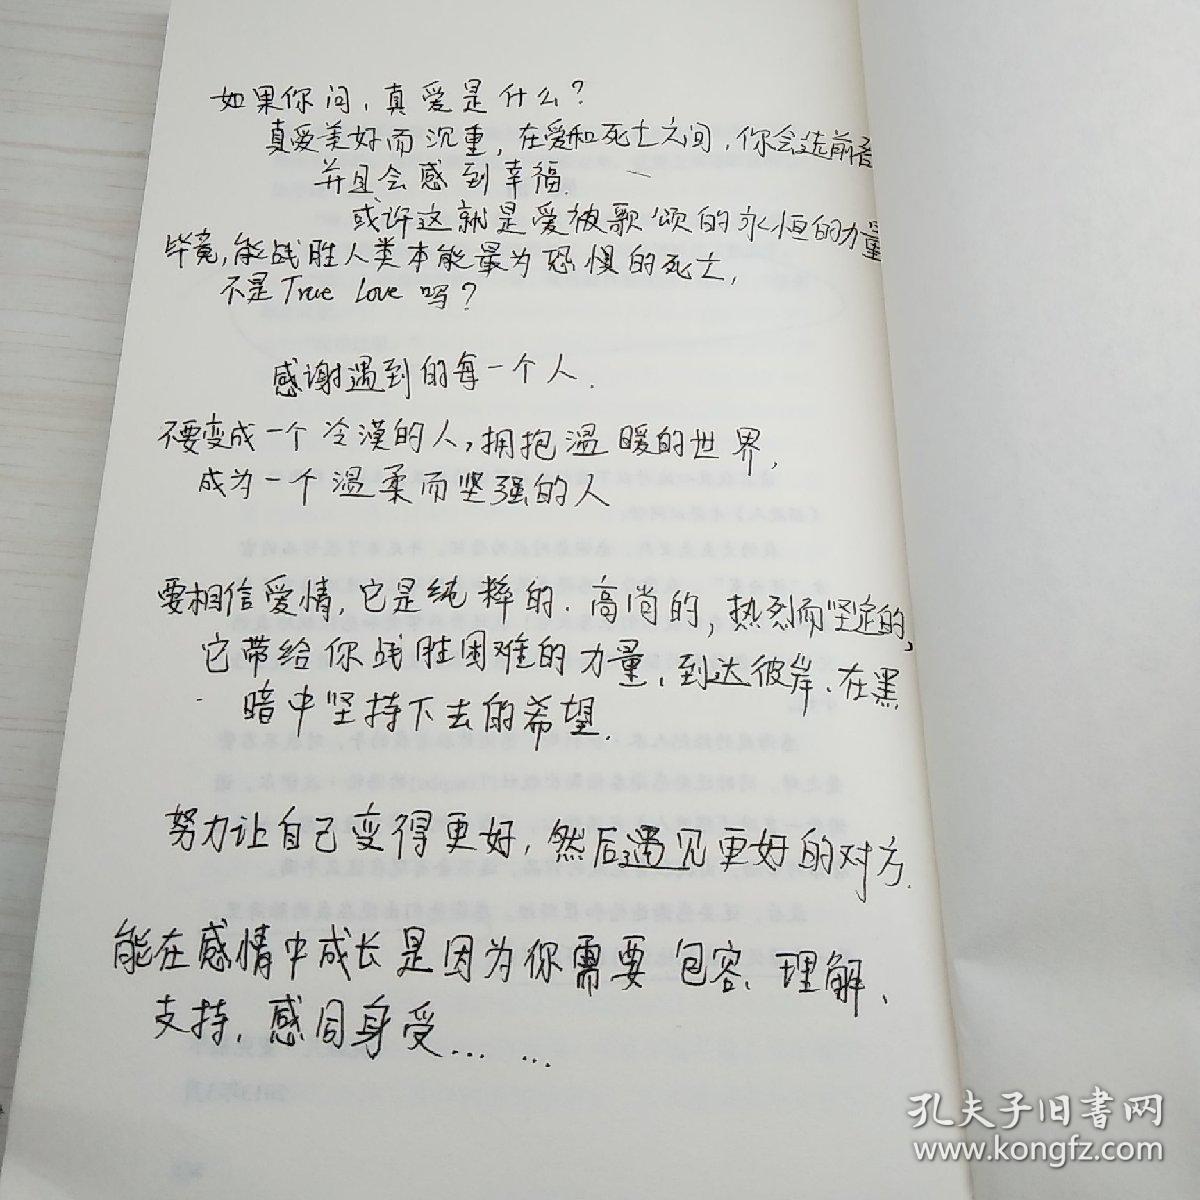 如果你问，真爱是什么？
真爱美好而沉重，在爱和死亡之间，你会选前者
并且会感到幸福.
或许这就是爱被歌颂的永恒的力量
毕竟，能战胜人类本能最为恐惧的死亡，
不是True Love吗？
感谢遇到的每一个人.
不要变成一个冷漠的人，拥抱温暖的世界，
成为一个温柔而坚强的人
要相信爱情，它是纯粹的.高尚的，热烈而坚定的，
它带给你战胜困难的力量、到达彼岸、在黑
暗中坚持下去的希望.
努力让自己变得更好，然后遇见更好的对方.
能在感情中成长是因为你需要包容、理解、
支持，感同身受……
2013年3月
孔夫子旧书网
www.kongfz.com